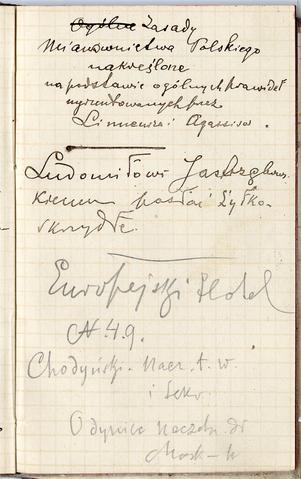 Ogólne Zasady
Mianownictwa Polskiego
nakreślone
na podstawie ogólnych prawideł
ugruntowanych przez
Linneusza i Agassisa.
Ludomiłowi
posłać Żyłko-
skrzydłe.
Europejski Hotel
N. 49.
Chodyński. Nacz. t. w.
i Sekr.
Odyniec Naczeln. dr
Mosk–